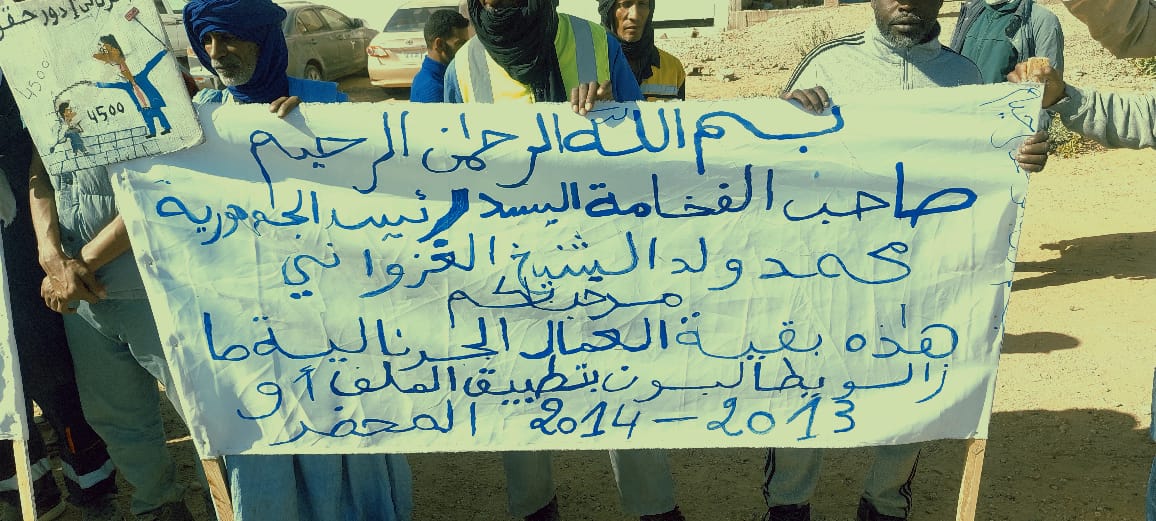 بسم الله الرحمن الرحيم
صاحب الفخامة السيد رئيس الجمهورية
محمد ولد الشيخ الغزواني
مرحبا بكم
هذه بقية العمال الجرنالية ما
زالو يطالبون بتطبيق الملف أو
المحضر 2014 - 2013
4500
4500